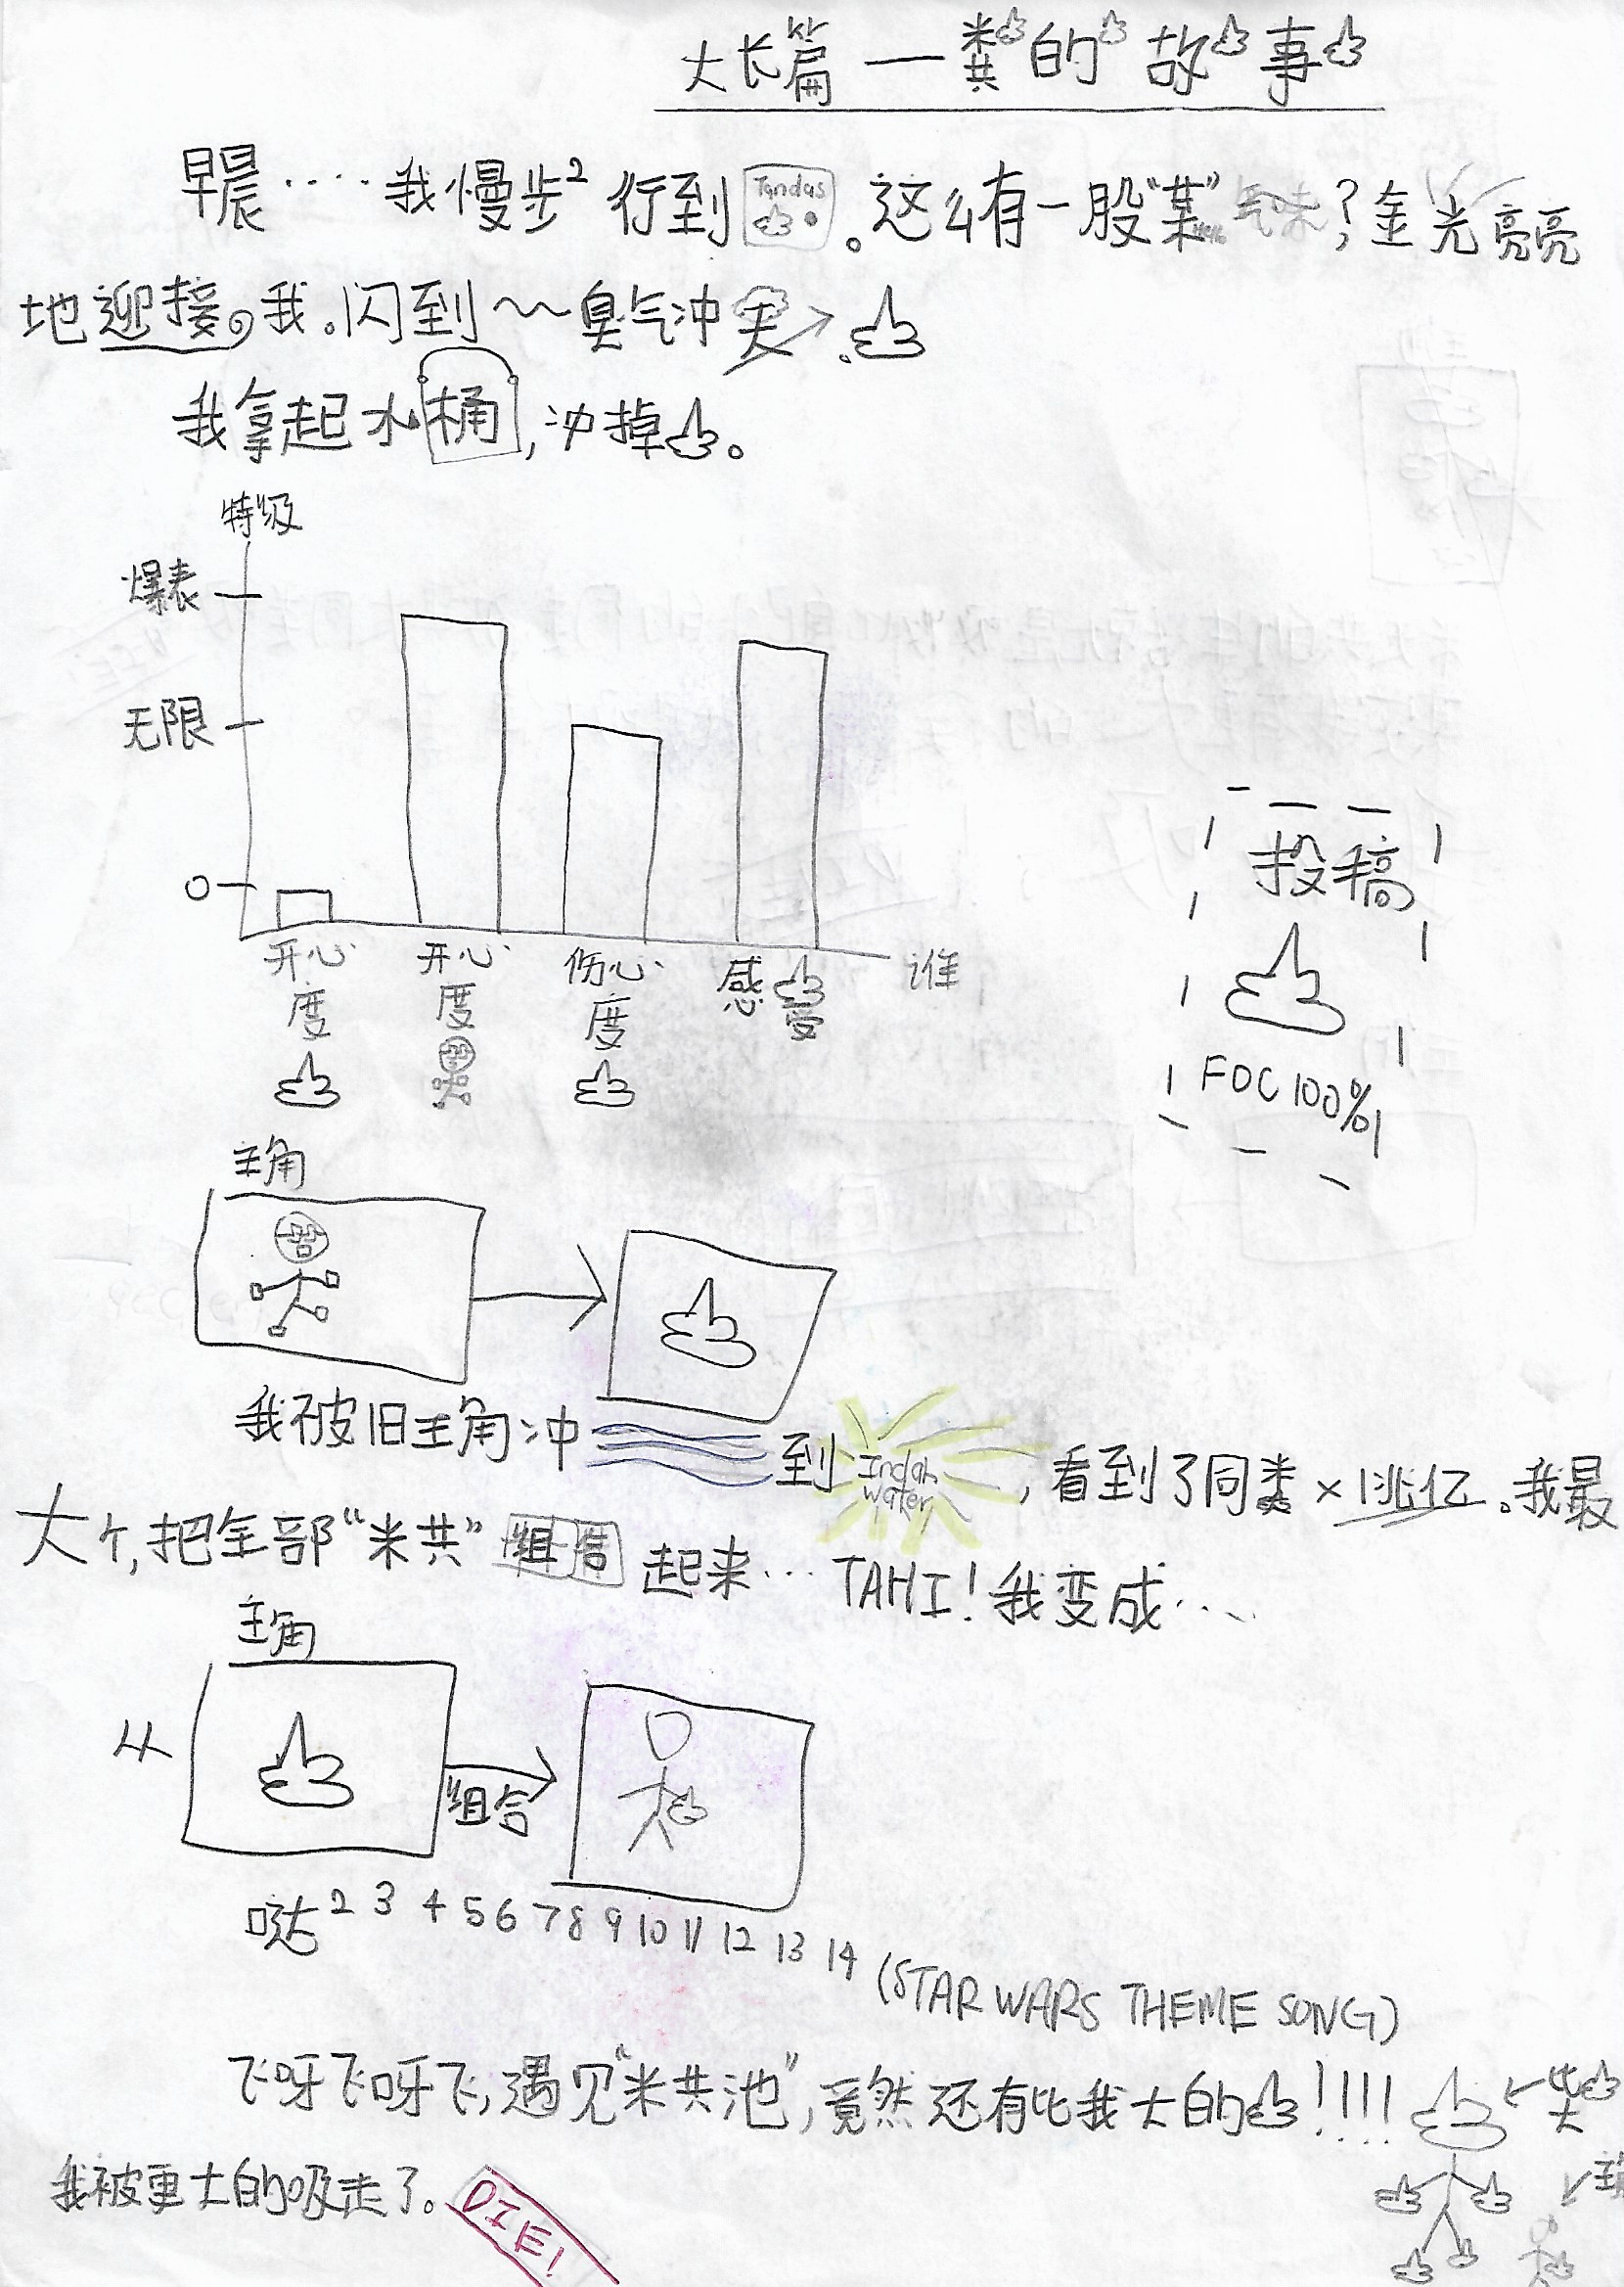 大长篇一粪的故事
早晨····我慢步² 行到 Tandas 。这么有一股“粪”气味?金光亮亮
地迎接。我。闪到~~臭气冲天.
我拿起水桶,冲掉。
特级
爆表
无限
0
开心度
开心度
伤心度
感受
谁
投稿
FOC 100%
主角
我被旧主角冲 到 Indah water ,看到了同类×1兆亿。我最
大个,把全部“米共”组合起来… TAHI!我变成····
主角
从
组合
哒 2 3 4 5 6 7 8 9 10 11 12 13 14 (STAR WARS THEME SONG)
飞呀飞呀飞,遇见“米共池”,竟然还有比我大的!!!!
我被更大的吸走了。 DIE!